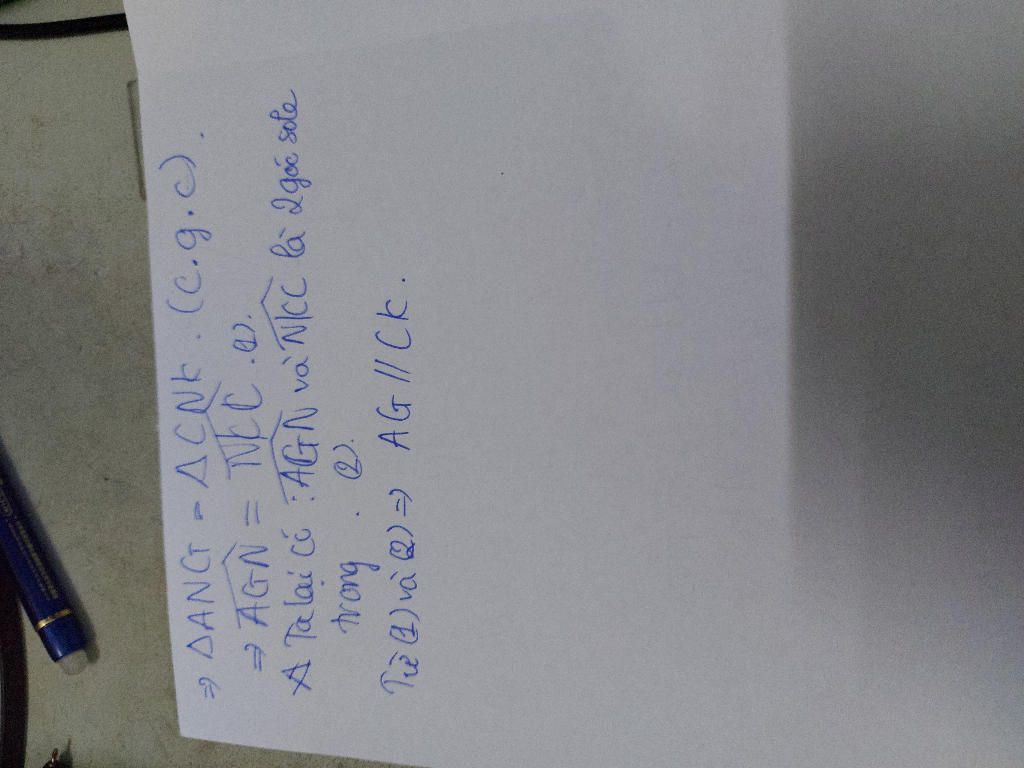 ⇒ ΔANG = ΔCNK. (c.g.c).
⇒ AGN = NKC. (1).
Ta lại có: AGN và NKC là 2 góc sole
trong. (2).
Từ (1) và (2) ⇒ AG // CK.